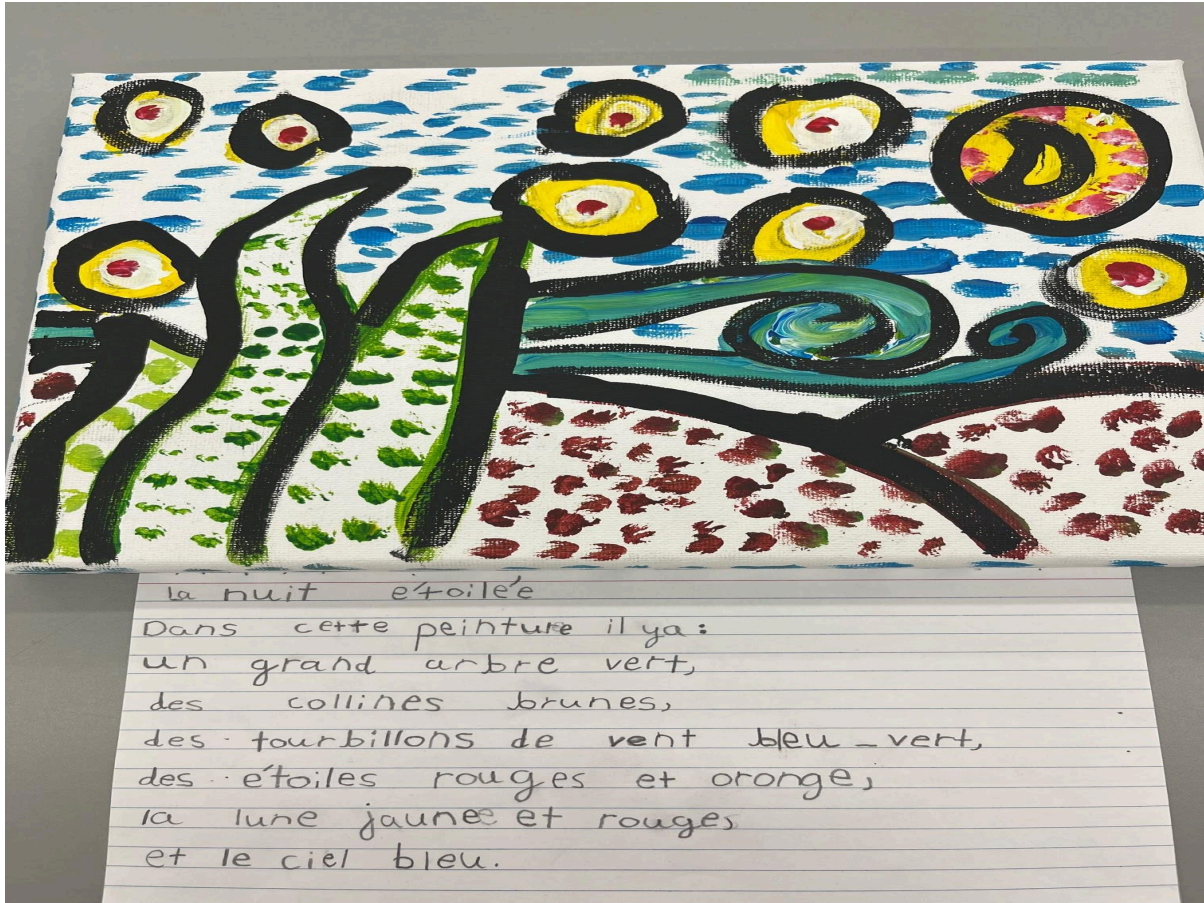 la nuit étoilée
Dans cette peinture il ya:
un grand arbre vert,
des collines brunes,
des tourbillons de vent bleu-vert,
des étoiles rouges et oronge,
la lune jaune et rouge,
et le ciel bleu.